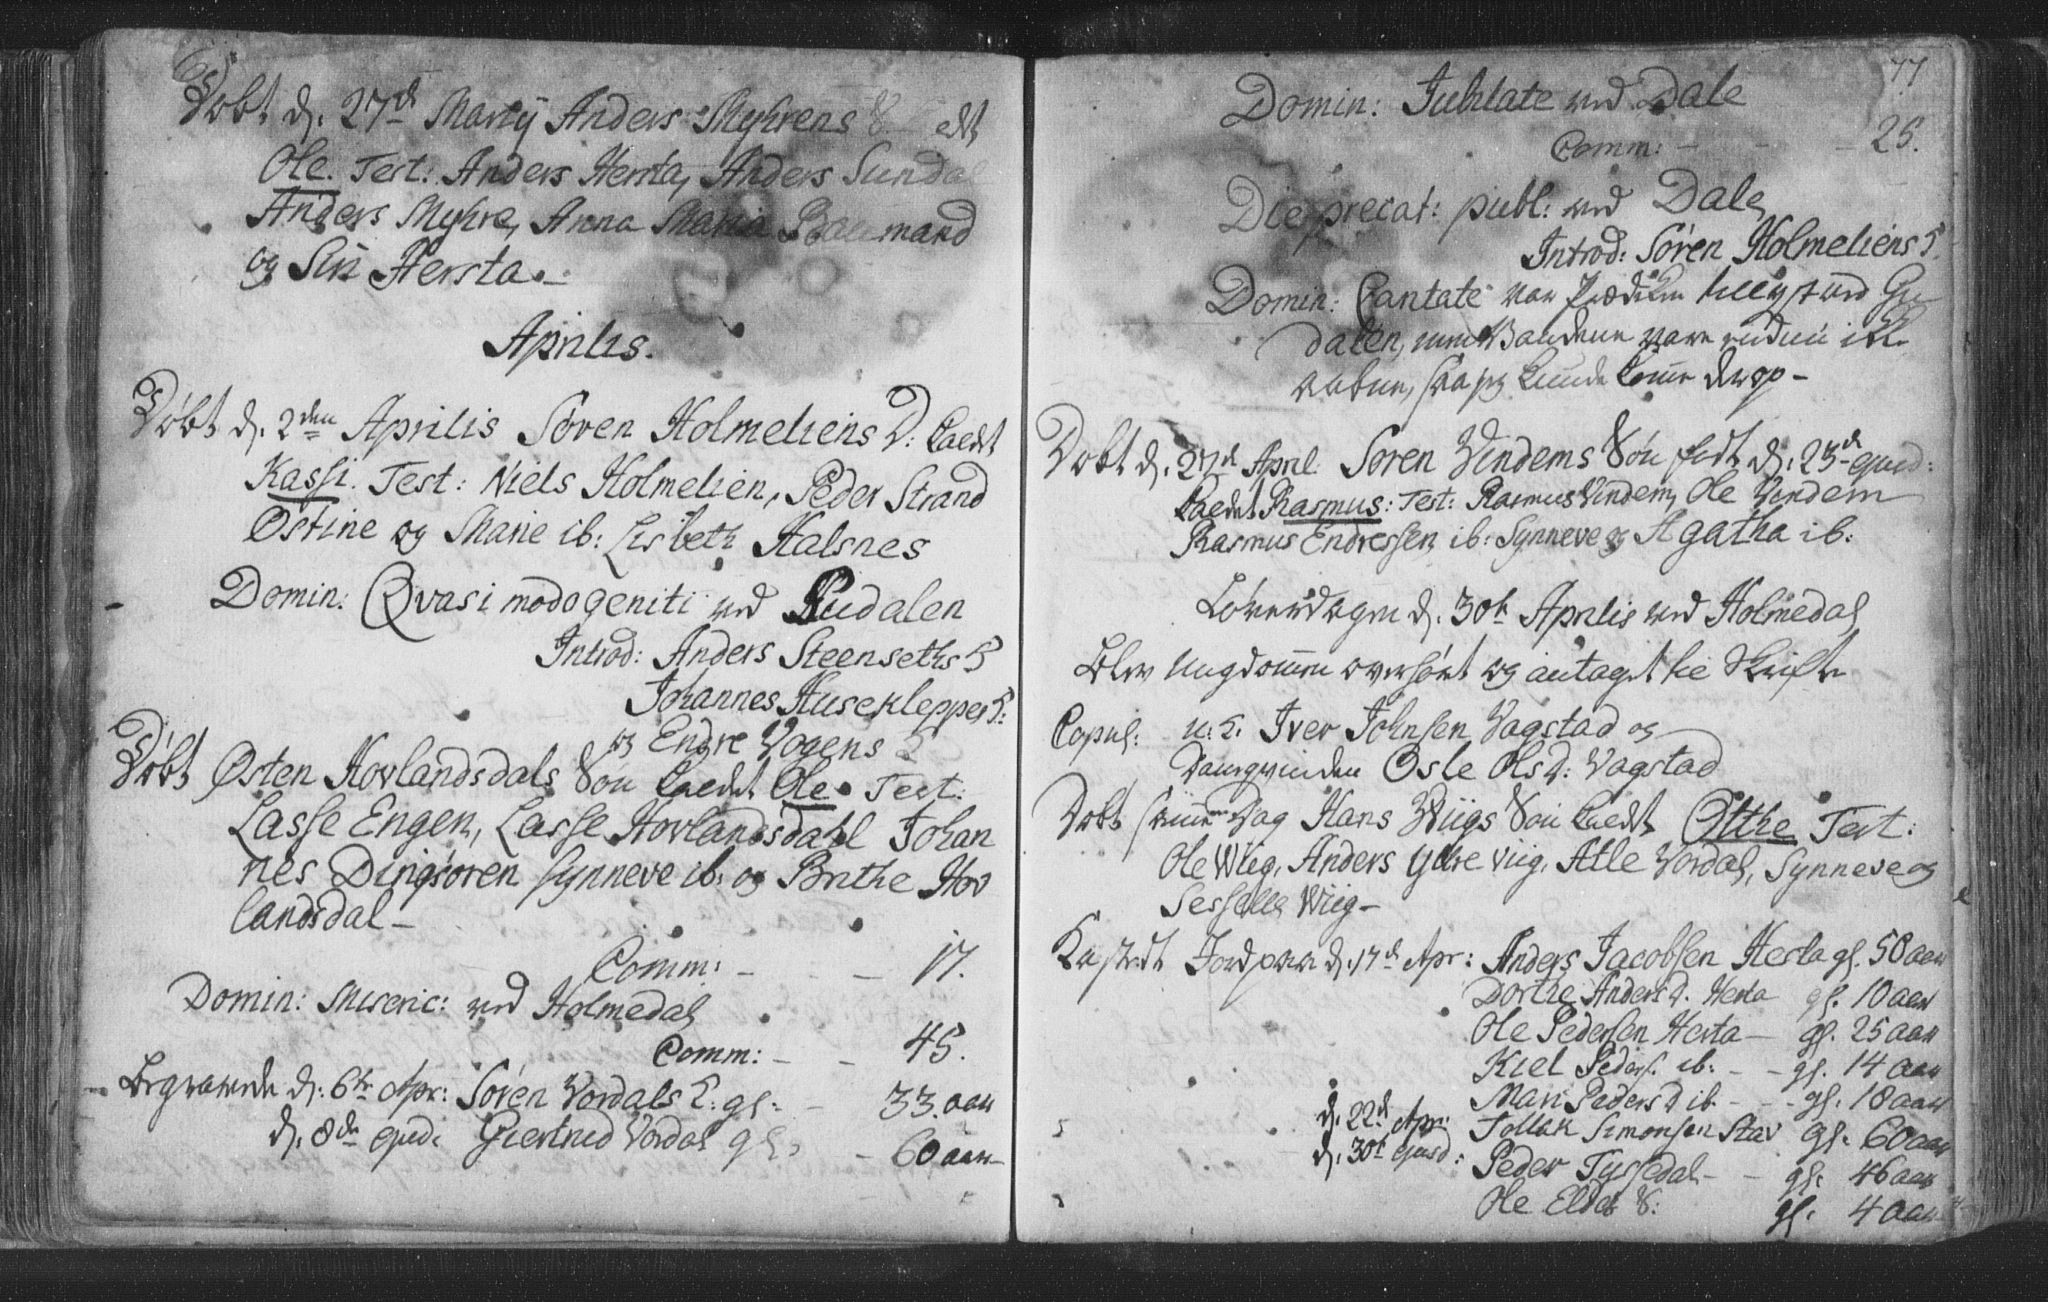 Døbt d. 27d Martij Anders Myhrens S.
Ole. Test: Anders Hersta, Anders Sunda
Anders Myhre, Anna Maria
og Siri Hersta.
Aprilis.
Døbt d. 2den Aprilis Søren Holmeliens D: kaldt
Kassi. Test: Niels Holmelien, Peder Strand
Østine og Marie ib: Lisbeth Halsnes
Domin: Qvasimodogeniti ved Gudalen
Introd: Anders Steensethsk
Johannes Huseklepper K:
og Endre Vogens K
Døbt Østen Hovlandsdals Søn kaldet Ole. Test:
Lasse Engen, Lasse Hovlandsdahl Johan
nes Dingsøren Synneve ib. og Brithe Hov
landsdal -
Comm: - - - 17.
Domin: Miseric: ved Holmedal
Comm: - - 45.
Begravede d: 6te Apr: Søren Vordals K: gl: - 33. aar
d. 8de ejusd. Giertrud Vordal gl: - 60 aar
77
Domin: Jubilate ved Dale
Comm: - - - 25.
Die precat: publ: ved Dale
Introd: Søren Holmeliens K.
Domin: Cantate var Prædiken tillyst ved Gu
dalen, men Vandene vare endnu ikke
aabne, saa jeg kunde komme derop -
Døbt d. 27d April. Søren Vindems Søn født d: 23d ejusd:
kaldet Rasmus: Test: Rasmus Vindem, Ole Vindem
Rasmus Endressen ib: Synneve og Agatha ib:
Løverdagen d. 30te Aprilis ved Holmedal
blev Ungdommen overhørt og antaget til Skrifte
Copul: u. K. Iver Johnsen Vagstad og
Danqvinden Osle Ols D: Vagstad
Døbt samme Dag Hans Wiigs Søn kaldt Otthe Test:
Ole Wiig, Anders Ytre Viig, Atle Vordal, Synneve og
Wiig -
Kastedt Jord paa d. 17d Apr: Anders Jacobsen Hersta gl. 50 aar
Dorthe Anders D. Hersta gl. 10 aar
Ole Pedersen Hersta - gl. 25 aar
Kiel Peders. ib: - - gl. 14 aar
Mari Peders D ib - - gl. 18 aar
d. 22d Apr: Tollak Simonsen Stav gl. 60 aar
d. 30te ejusd: Peder Tyssedal - - gl. 46 aar
Ole Eldes S: gl. 4 aar